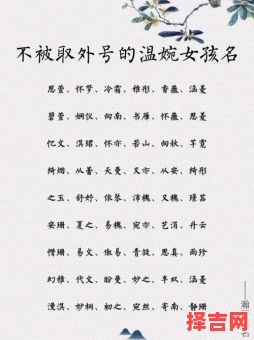 不被取外号的温婉女孩名
思萱、怀梦、冷霜、雅彤、香薇、涵蔓
碧萱、娴仪、向南、书雁、怀薇、思菱
忆文、淇珺、怀亦、若山、向秋、芊霓
绮烟、从蕾、天曼、又亦、从安、绮彤
之玉、舒妤、依琴、沛槐、又槐、瑾菡
安珊、夏之、易槐、宛亦、艺涓、丹云
惜珊、易文、傲易、青旋、思真、雨珍
幻雅、代文、盼曼、妙之、半双、涵菱
漫淇、妙桐、初之、宛丝、寄南、静珊
择吉网